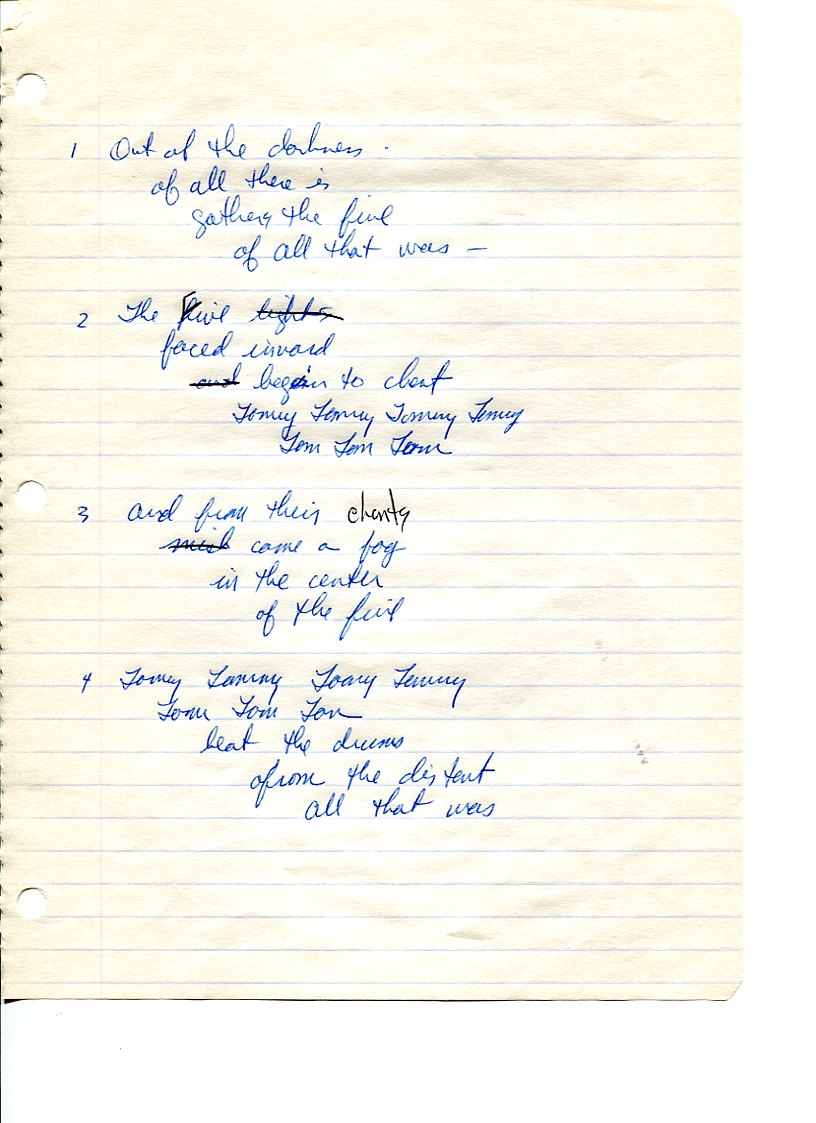 1 Out of the darkness.
of all there is
gathers the five
of all that was —
2 The Five lights
faced inward
and began to chant
Tommy Tommy Tommy Tommy
Tom Tom Tom
3 and from their chants
came a fog
in the center
of the five
4 Tommy Tommy Tommy Tommy
Tom Tom Tom
beat the drums
from the distent
all that was